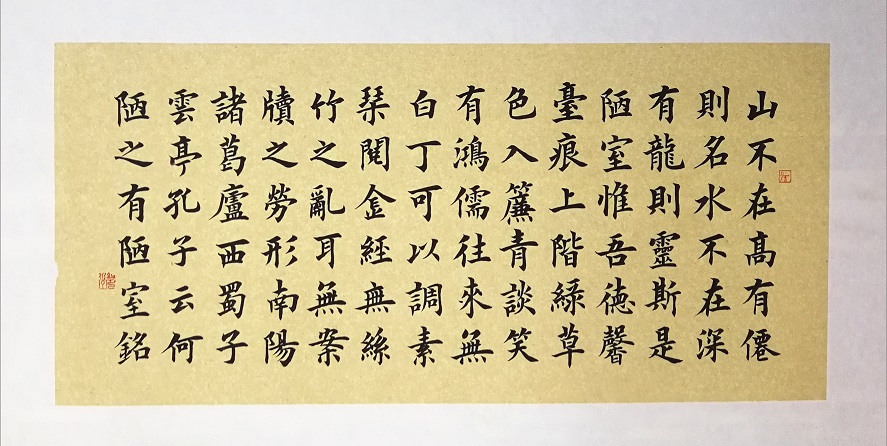 山不在高有僊
則名水不在深
有龍則靈斯是
陋室惟吾德馨
臺痕上階綠草
色入簾青談笑
有鴻儒往來無
白丁可以調素
琹閱金經無絲
竹之亂耳無案
牘之勞形南陽
諸葛廬西蜀子
雲亭孔子云何
陋之有陋室銘